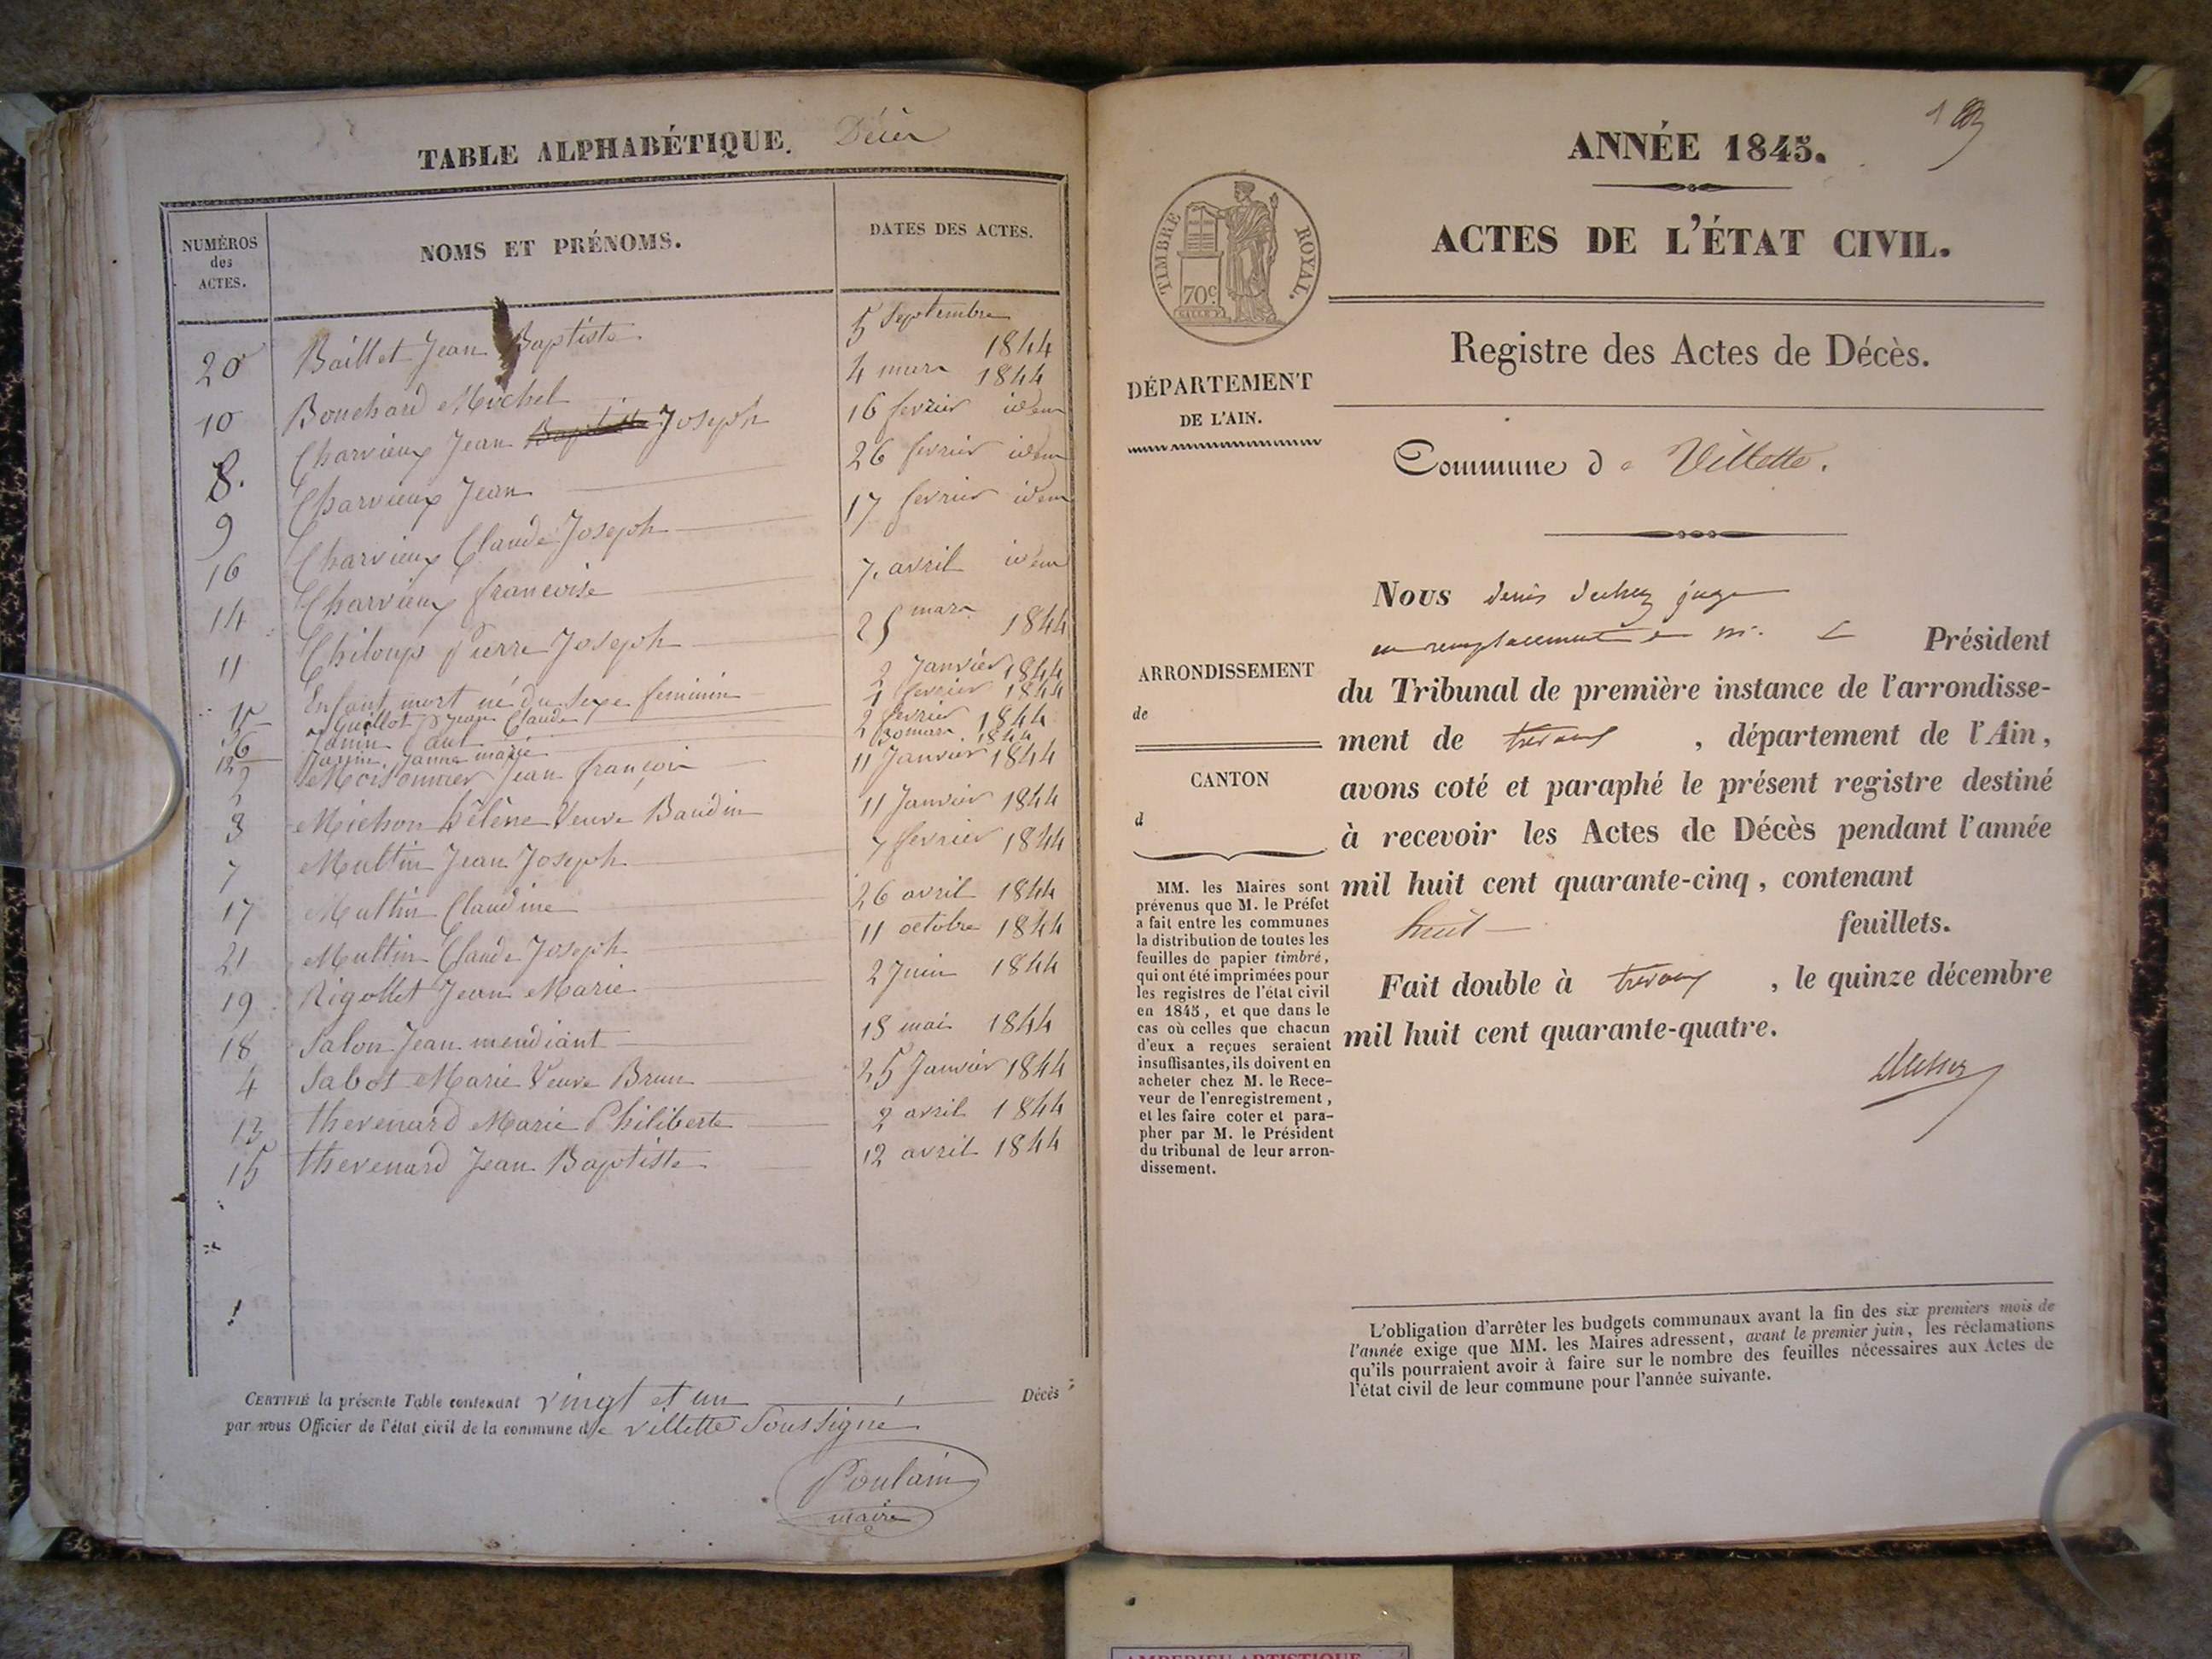 TABLE ALPHABÉTIQUE. Décès
NUMÉROS
des
ACTES.
NOMS ET PRÉNOMS.
DATES DES ACTES.
20 Baillet Jean Baptiste 5 Septembre 1844
10 Bouchard Michel 4 mars 1844
8. Charvieux Jean Baptiste Joseph 16 fevrier idem
9 Charvieux Jean 26 fevrier idem
Charvieux Claude Joseph 17 fevrier idem
16 Charvieux francoise 7. avril idem
14 Chiloup Pierre Joseph 25 mars 1844
11 Enfant mort né du sexe feminin 2 Janvier 1844
Guillot Jean Claude fevrier 1844
6 Janin 2 fevrier 1844
12 Janin Janne marie 30 mars 1844
2 Moisonnier Jean françois 11 Janvier 1844
3 Michon hélène Veuve Baudin 11 Janvier 1844
7 Multin Jean Joseph 7 fevrier 1844
17 Multin Claudine 26 avril 1844
21 Multin Claude Joseph 11 octobre 1844
19 Rigollet Jean Marie 2 Juin 1844
18 Salon Jean mendiant 18 mai 1844
4 Sabot Marie Veuve Brun 25 Janvier 1844
13 thevenard Marie Philiberte 2 avril 1844
15 thevenard Jean Baptiste 12 avril 1844
CERTIFIÉ la présente Table contenant vingt et un Décès
par nous Officier de l'état civil de la commune de villette Soussigné
Poulain
maire
ANNÉE 1845.
ACTES DE L'ÉTAT CIVIL.
TIMBRE ROYAL.
70c
Registre des Actes de Décès.
DÉPARTEMENT
DE L'AIN.
Commune de Villette.
ARRONDISSEMENT
de
CANTON
d
MM. les Maires sont
prévenus que M. le Préfet
a fait entre les communes
la distribution de toutes les
feuilles de papier timbré,
qui ont été imprimées pour
les registres de l'état civil
en 1845, et que dans le
cas où celles que chacun
d'eux a reçues seraient
insuffisantes, ils doivent en
acheter chez M. le Rece-
veur de l'enregistrement,
et les faire coter et para-
pher par M. le Président
du tribunal de leur arron-
dissement.
Nous denis juge
en remplacement de m. Le Président
du Tribunal de première instance de l'arrondisse-
ment de trevoux, département de l'Ain,
avons coté et paraphé le présent registre destiné
à recevoir les Actes de Décès pendant l'année
mil huit cent quarante-cinq, contenant
huit feuillets.
Fait double à trevoux, le quinze décembre
mil huit cent quarante-quatre.
L'obligation d'arrêter les budgets communaux avant la fin des six premiers mois de
l'année exige que MM. les Maires adressent, avant le premier juin, les réclamations
qu'ils pourraient avoir à faire sur le nombre des feuilles nécessaires aux Actes de
l'état civil de leur commune pour l'année suivante.
AMBERIEU ARTISTIQUE